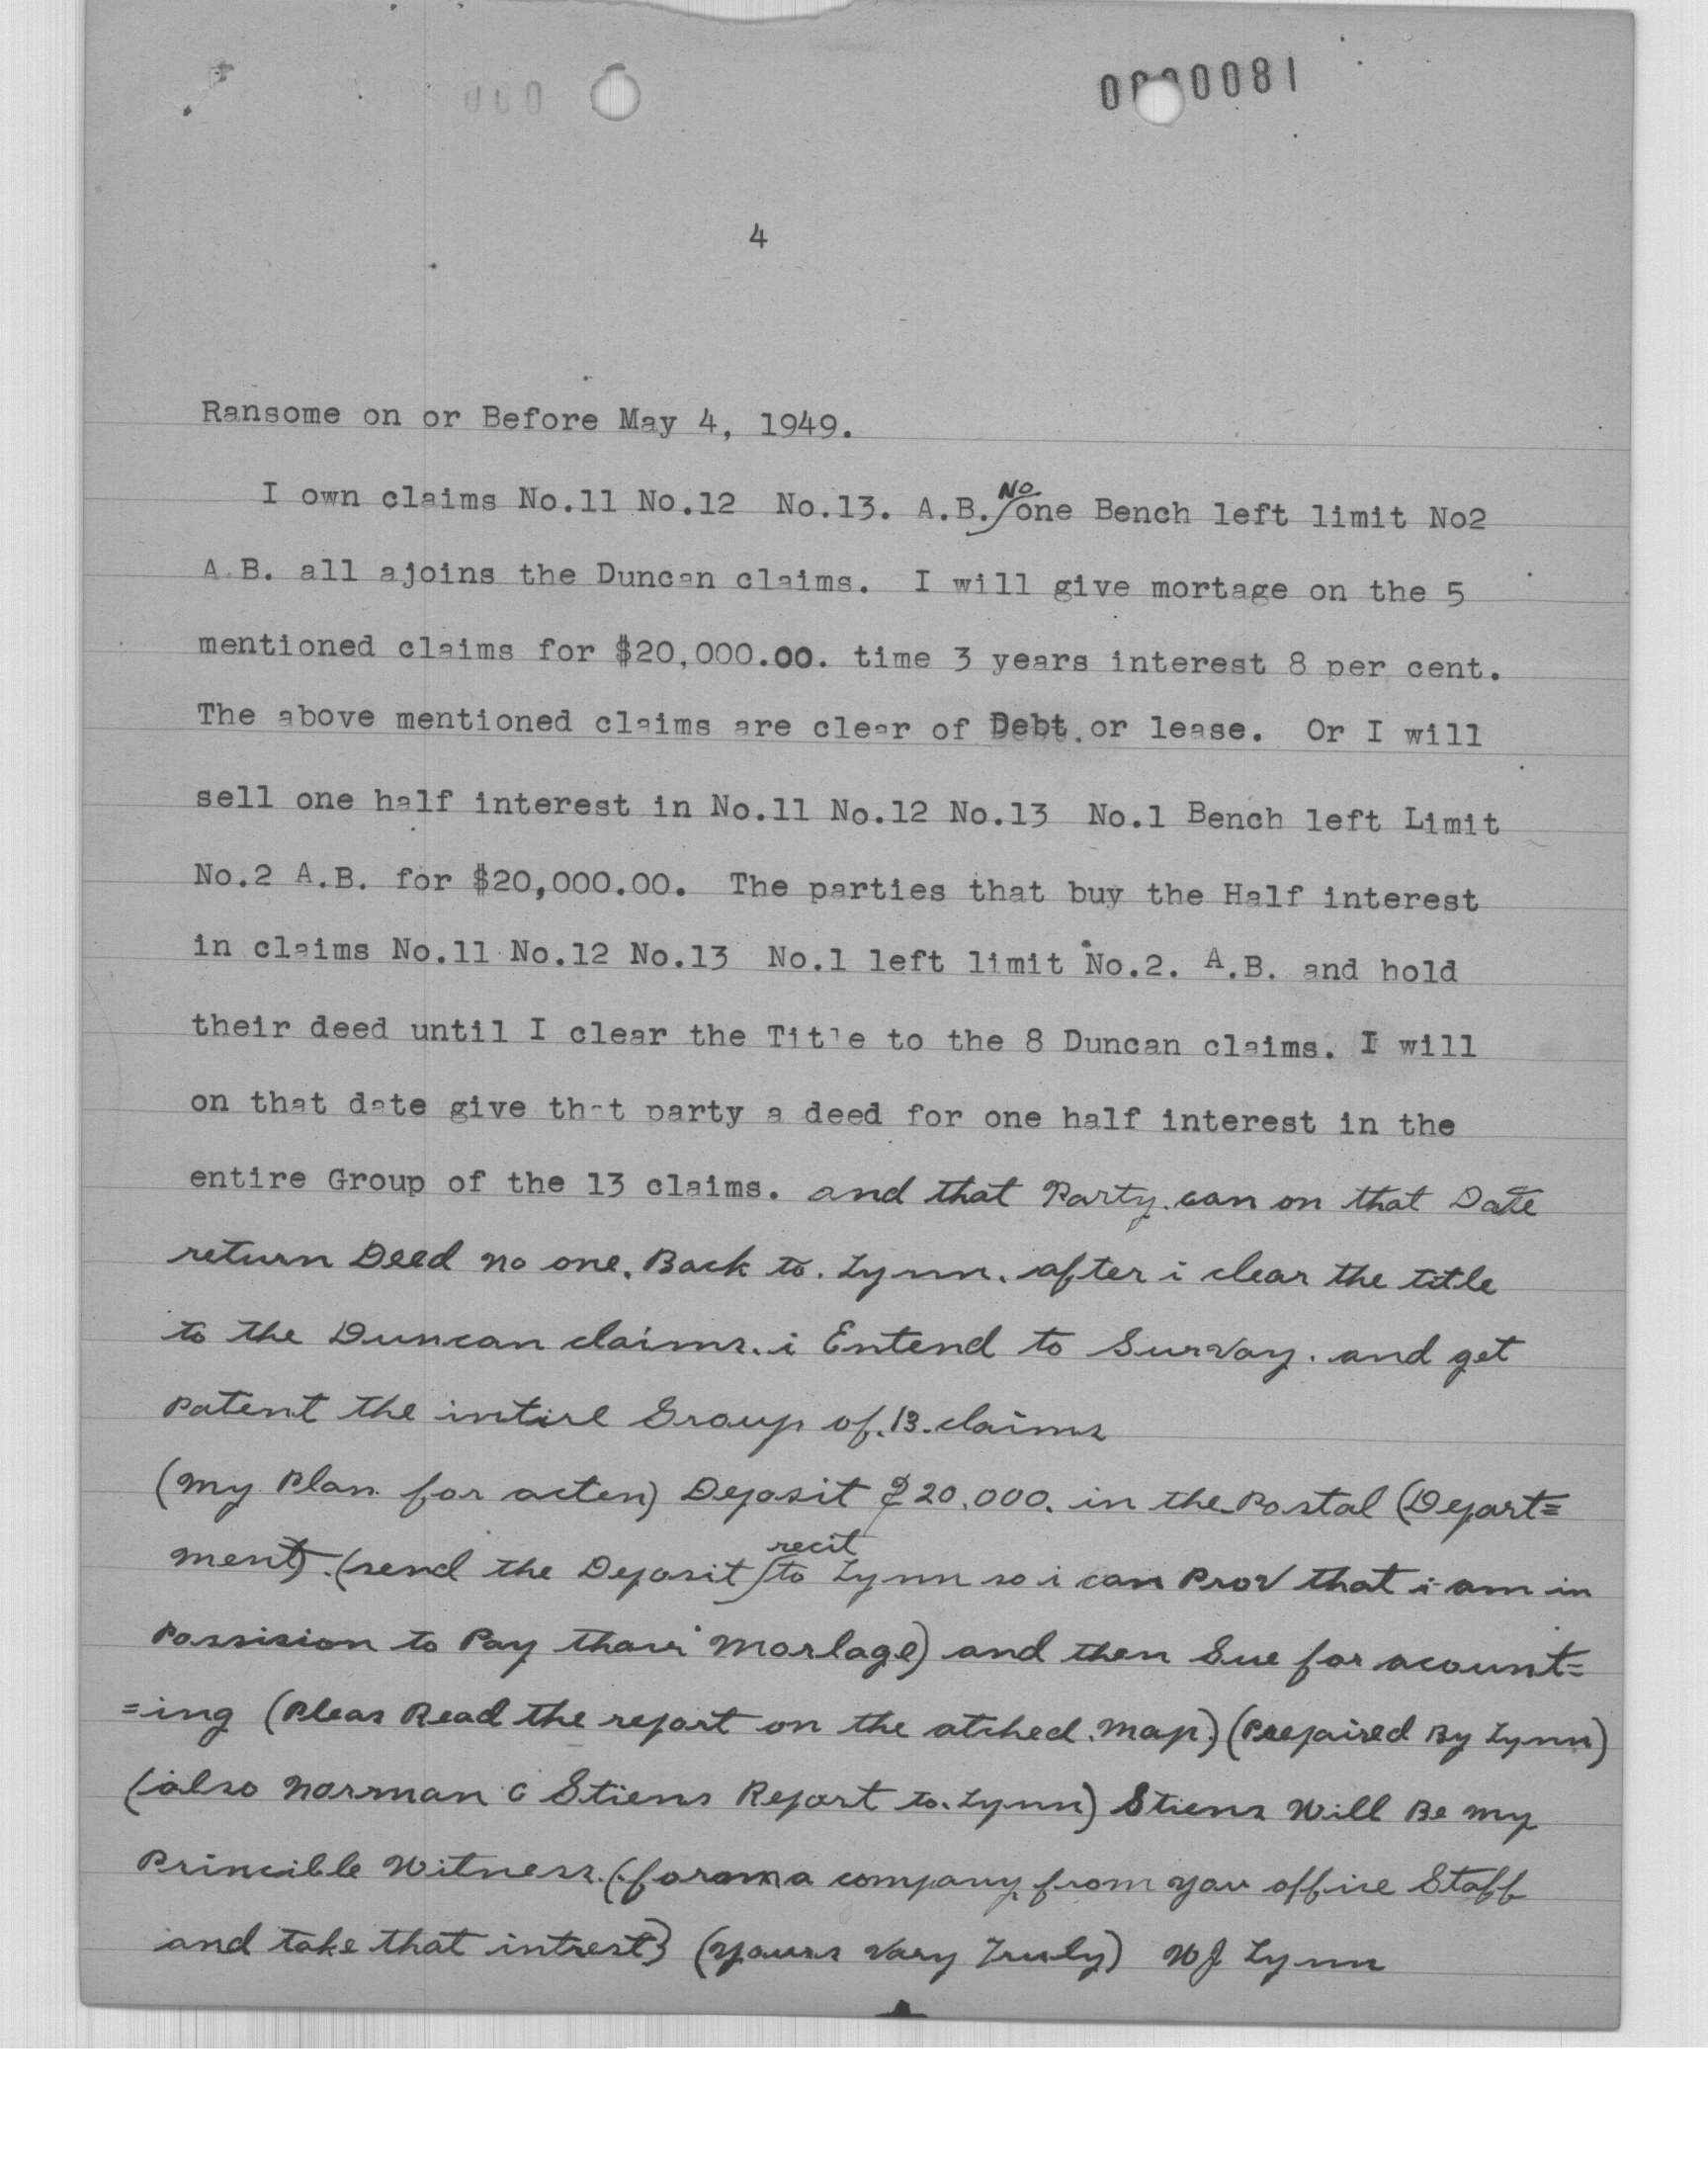 0000081
4
Ransome on or Before May 4, 1949.
I own claims No.11 No.12 No.13. A.B. No one Bench left limit No2
A.B. all ajoins the Duncan claims. I will give mortage on the 5
mentioned claims for $20,000.00. time 3 years interest 8 per cent.
The above mentioned claims are clear of Debt. or lease. Or I will
sell one half interest in No.11 No.12 No.13 No.1 Bench left Limit
No.2 A.B. for $20,000.00. The parties that buy the Half interest
in claims No.11 No.12 No.13 No.1 left limit No.2. A.B. and hold
their deed until I clear the Title to the 8 Duncan claims. I will
on that date give that party a deed for one half interest in the
entire Group of the 13 claims. and that Party. can on that Date
return Deed no one. Back to. Lynn. after i clear the title
to the Duncan claims. i Entend to Survay. and get
Patent the intire Group of. 13. claims
(my Plan for acten) Deposit $20.000. in the Postal (Depart=
ment). (send the Deposit recit to Lynn so i can Prov that i am in
Possision to Pay thair Morlage) and then Sue for acount=
=ing (Pleas Read the report on the atched. Map.) (Prepaired By Lynn)
(also Norman C Stiens Report to. Lynn) Stiens Will Be my
Princible Witness. (form a company from your office Staff
and take that intrest) (yours Vary Truly) WJ Lynn